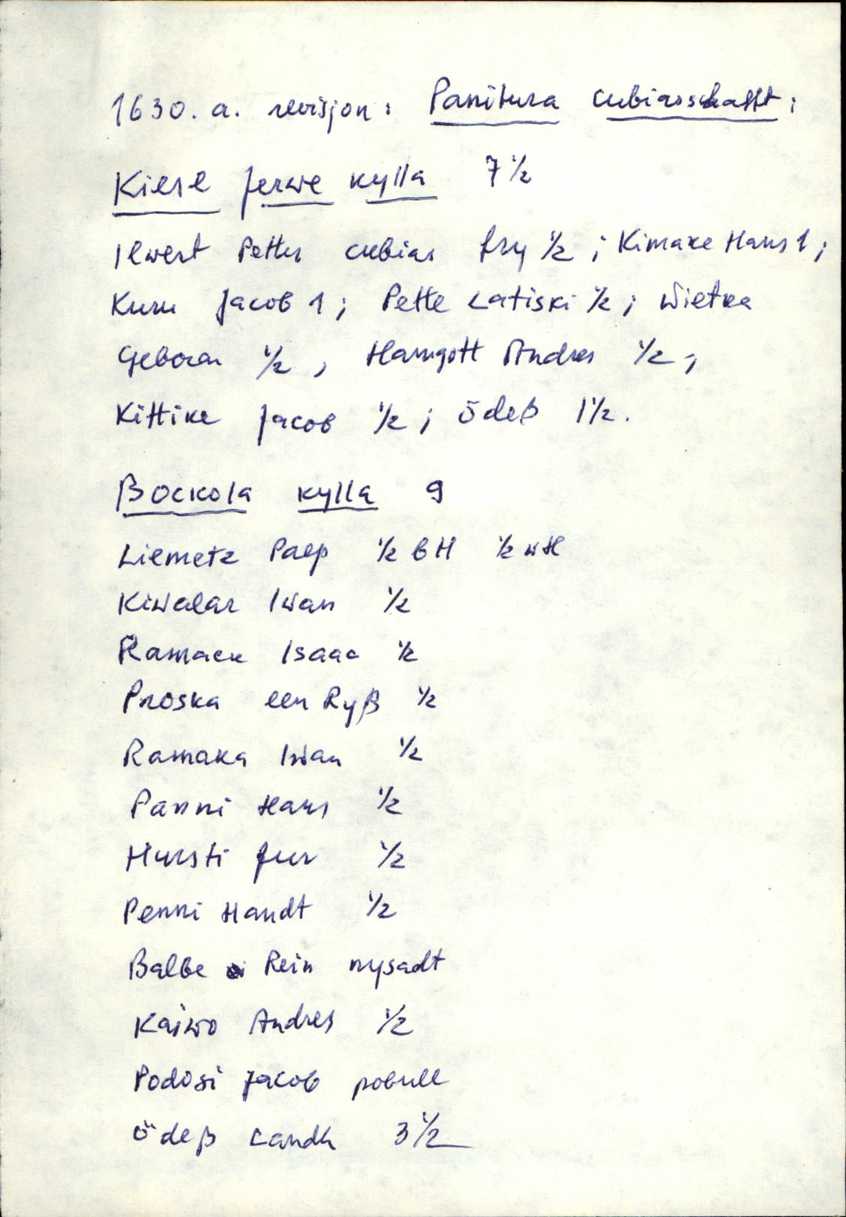 1630. a. revisjon: Panitura cubiasschafft:
Kiese Jerwe kylla 7 1/2
Ilwest Petter cubias fry 1/2; Kimake Hans 1;
Kuru Jacob 1; Pette Latiski 1/2; Wietka
1/2, Hamgott Andres 1/2,
Kittike Jacob 1/2; ödeß 1 1/2.
Bockola kylla 9
Liemetz Paep 1/2 BH 1/2 wH
Kiwalar Iwan 1/2
Ramack Isaac 1/2
Proska een Ryß 1/2
Ramaka Iwan 1/2
Panni Hans 1/2
Hursti Jur 1/2
Penni Handt 1/2
Balbe Rein nysadt
Kaiwo Andres 1/2
Podosi Jacob pobull
ödeß Landh 3 1/2